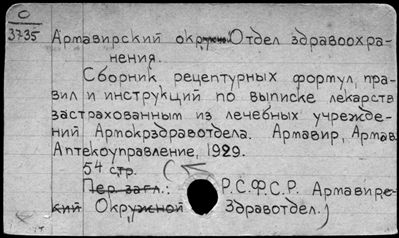 О
3735
Армавирский окружн. Отдел здравоохра-
нения.
Сборник рецептурных формул, пра-
вил и инструкций по выписке лекарств
застрахованным из лечебных учрежде-
ний Армокрздравотдела. Армавир, Армав.
Аптекоуправление, 1929.
54 стр.
Пер. загл.: Р.С.Ф.С.Р. Армавирс-
кий Окружной Здравотдел.)